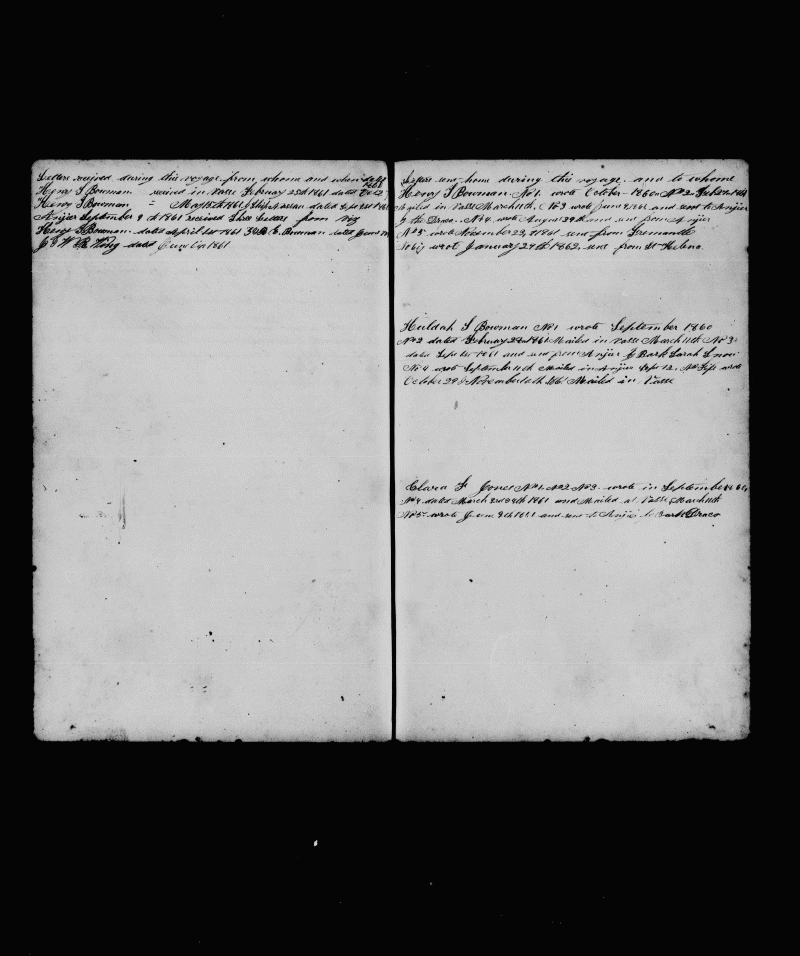 Letters received during this voyage from whome and when dated
Henry S Bowman received in Vasse February 25th 1861 dated Oct 2 1860
Henry S Bowman = May 15th 1861 Ship dated Sept 1st 1860
Anjier September 9 d 1861 received three Letters from viz
Henry S Bowman dated April 1st 1861 E. Bowman dated June
J E W dated June 1861
Letters sent home during this voyage and to whome
Henry S Bowman No 1. wrote October 1860 No 2 Feb 27th 1861
Mailed in Vasse March 11th, No 3 wrote June 9 1861 and sent to Anjier
by the Draco. No 4. wrote August 29th and sent from Anjier
No 5 wrote November 23, d 1861 sent from Fremantle
No 6 wrote January 27th 1862, sent from St Helena
Huldah S Bowman No 1 wrote September 1860
No 2 dated February 22d 1861 Mailed in Vasse March 11th No 3
dated Sept 1st 1861 and sent from Anjier by Bark Sarah Snow
No 4 wrote September 11th Mailed in Anjier Sept 12. No Five wrote
October 29 & November 10th 1861 Mailed in Vasse
Clara F Jones No 1 No 2 No 3 wrote in September 1860,
No 4 dated March 3rd 8th 1861 and Mailed at Vasse March 11th
No 5 wrote June 9th 1861 and sent to Anjier by Bark Draco